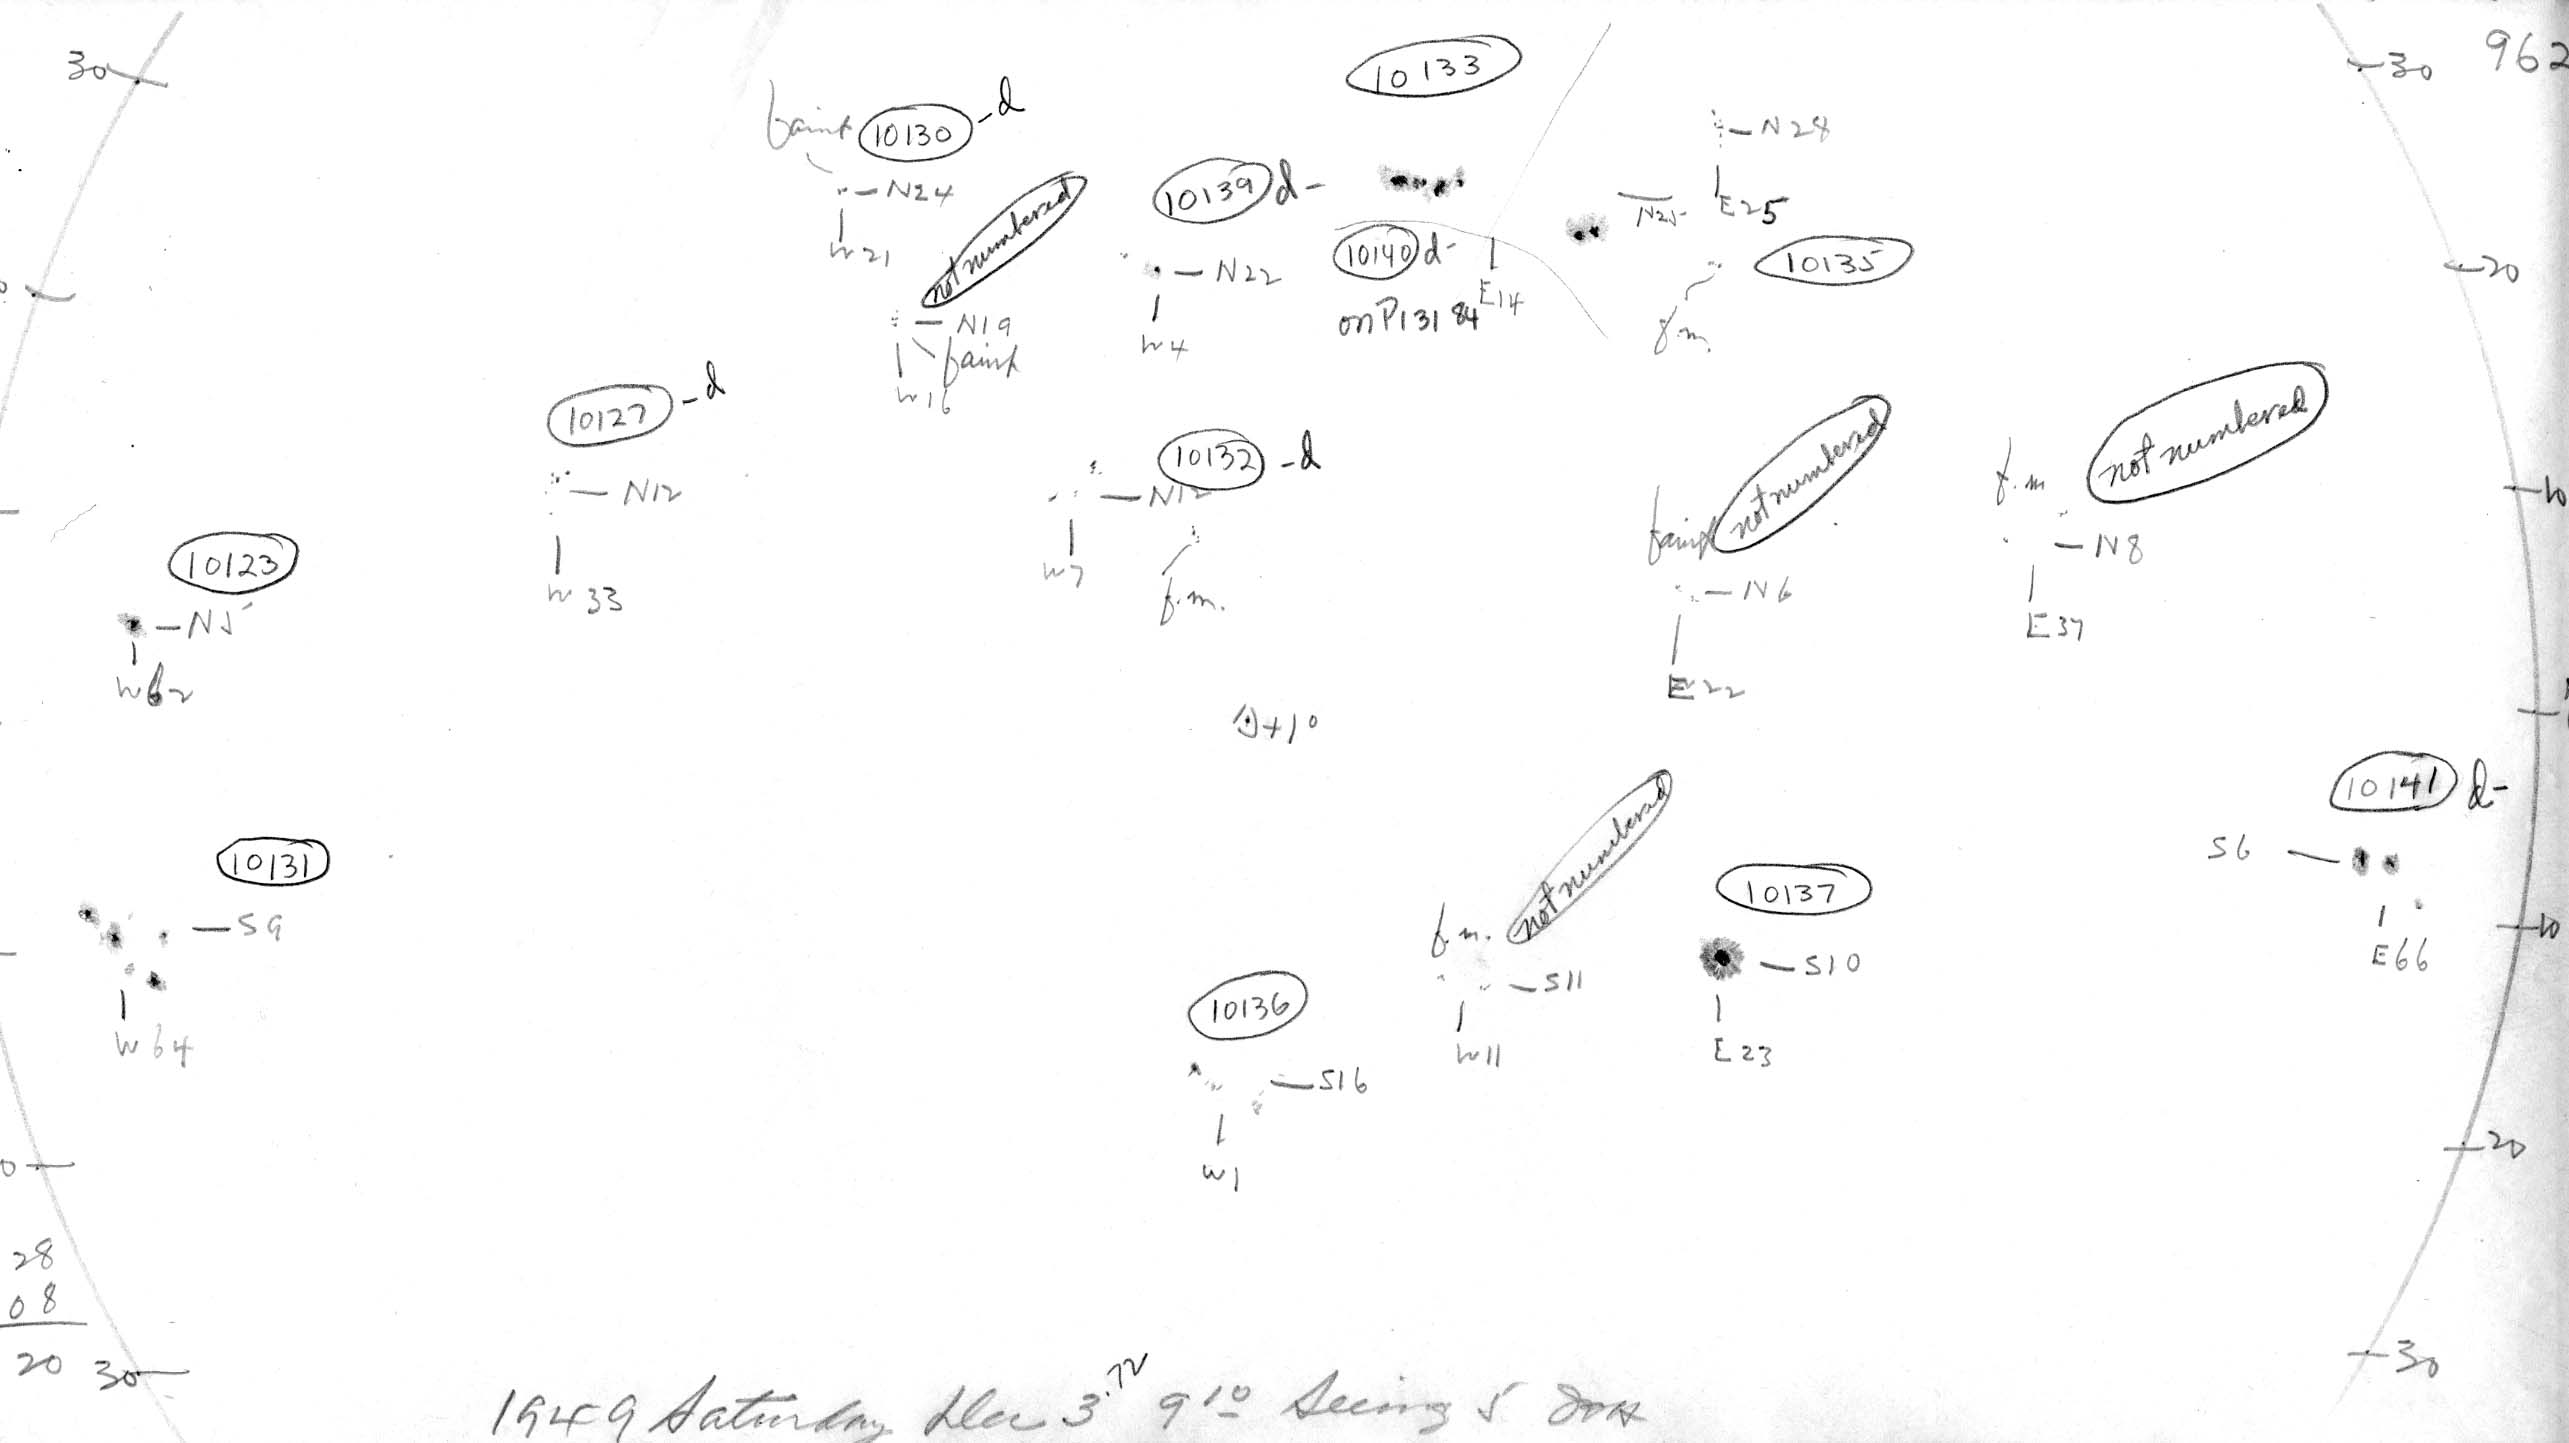 30
10133
30
962
faint
10130 -d
N28
10139 d-
N24
not numbered
N25
E25
W21
10140 d-
10135
20
N22
E14
on P131 84
N19
faint
W4
f.m.
W16
10127 -d
10132 -d
not numbered
f.m
not numbered
10
N12
N12
faint
10123
W7
N8
W33
f.m.
N6
N5
E37
W62
E22
+1°
10141 d-
10131
not numbered
10137
S6
S9
f.m.
10
S11
S10
E66
10136
W64
W11
E23
S16
20
W1
28
08
20
30
30
1949 Saturday Dec 3.72 9 10 Seeing 5